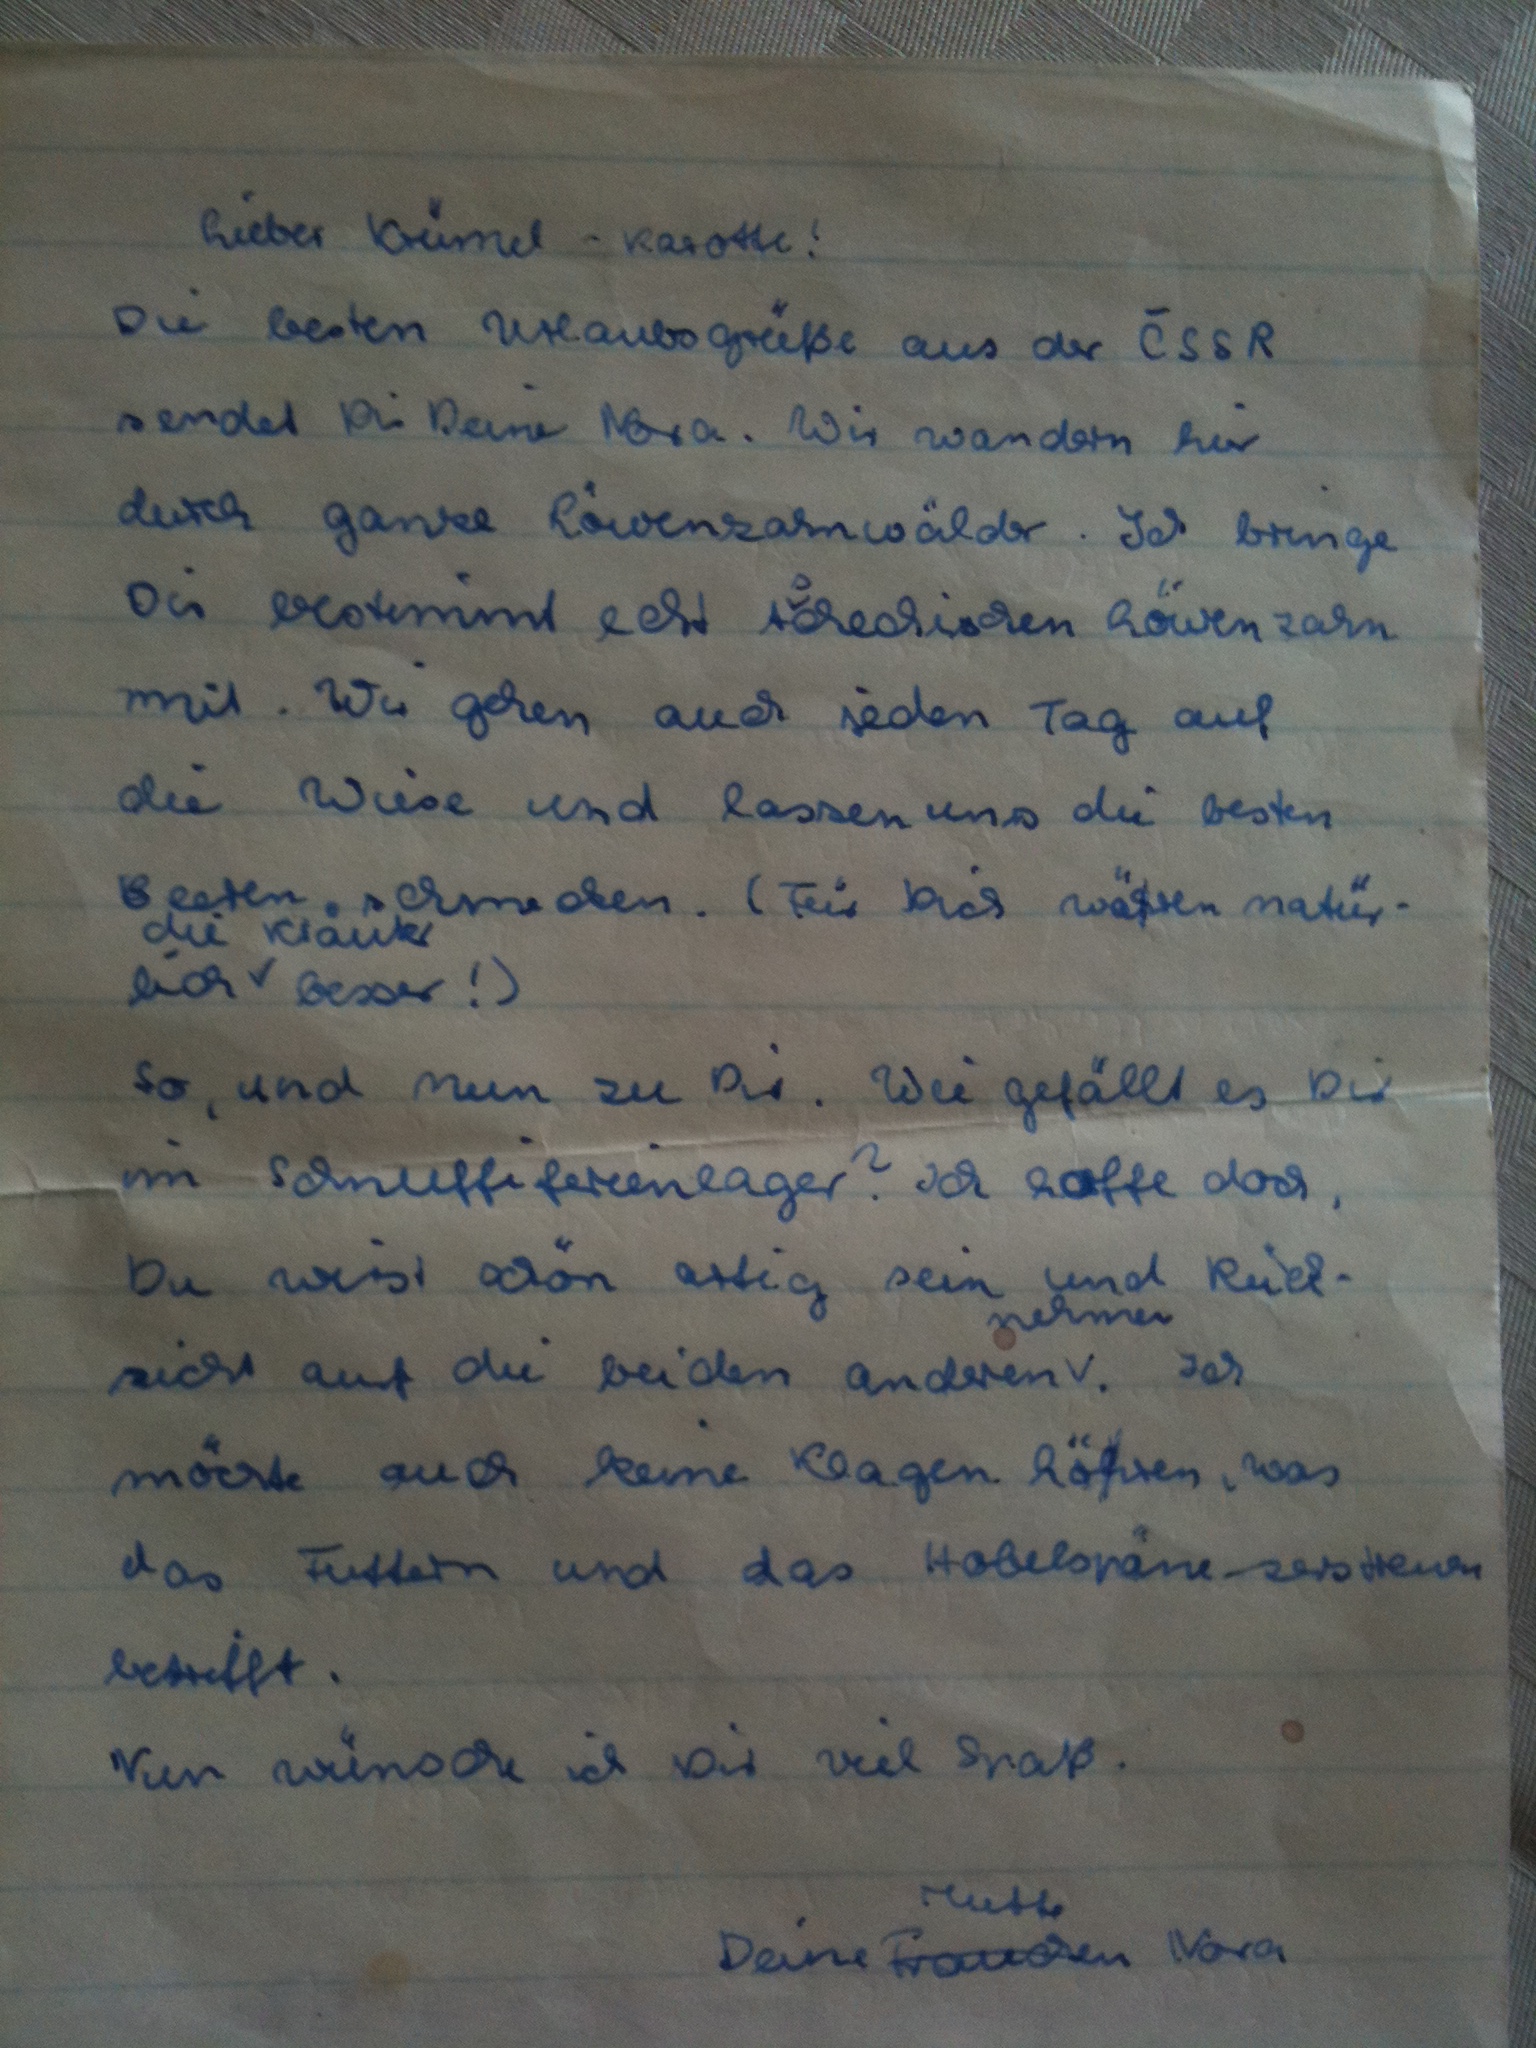 Lieber Krümel - Karotte!
Die besten Urlaubsgrüße aus der ČSSR
sendet Dir Deine Nora. Wir wandern hier
durch ganze Löwenzahnwälder. Ich bringe
Dir bestimmt echt tschechischen Löwenzahn
mit. Wir gehen auch jeden Tag auf
die Wiese und lassen uns die besten
Beeren schmecken. (Für Dich wären natür-
die Kräuter
lich besser!)
So, und nun zu Dir. Wie gefällt es Dir
im Schnuffiferienlager? Ich hoffe doch,
Du wirst schön artig sein und Rück-
nehmen
sicht auf die beiden anderen. Ich
möchte auch keine Klagen hören, was
das Futtern und das Hobelspäne-zerstreuen
betrifft.
Nun wünsche ich Dir viel Spaß.
Mutti
Deine Frauchen Nora